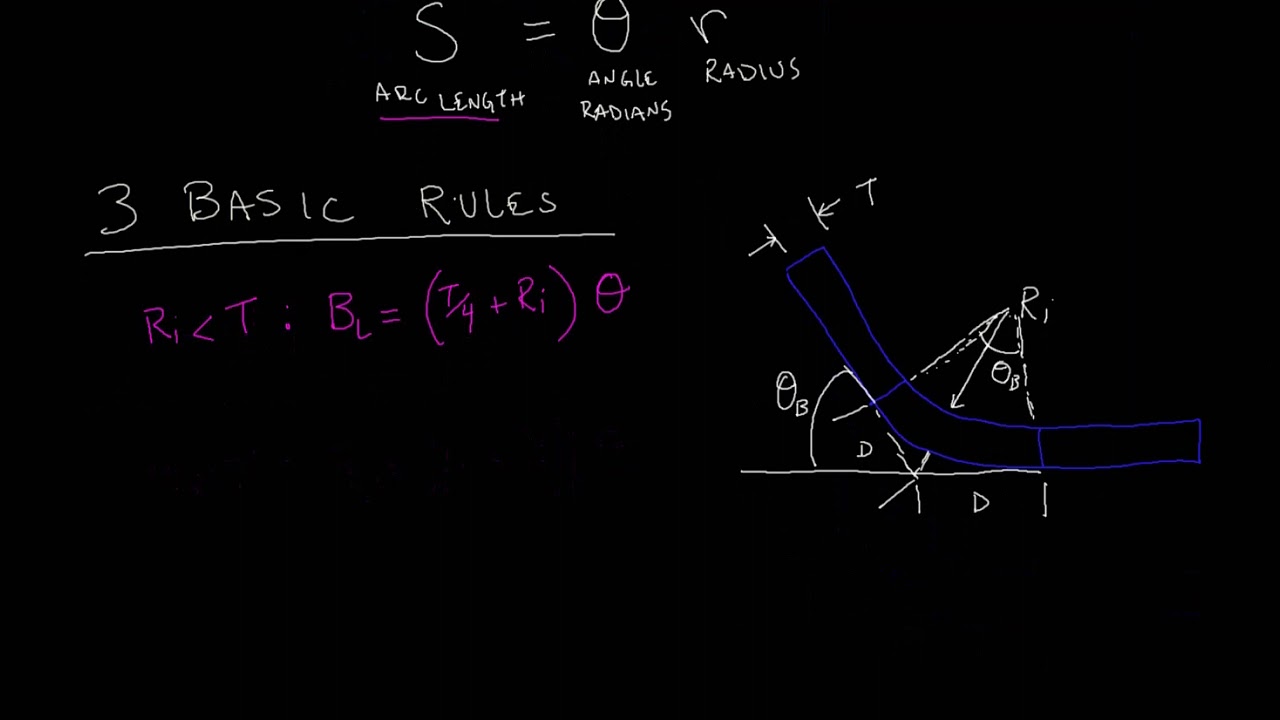 S = θ r
ARC LENGTH
ANGLE
RADIANS
RADIUS
3 BASIC RULES
Ri < T : BL = (T/4 + Ri) θ
T
Ri
θB
θB
D
D